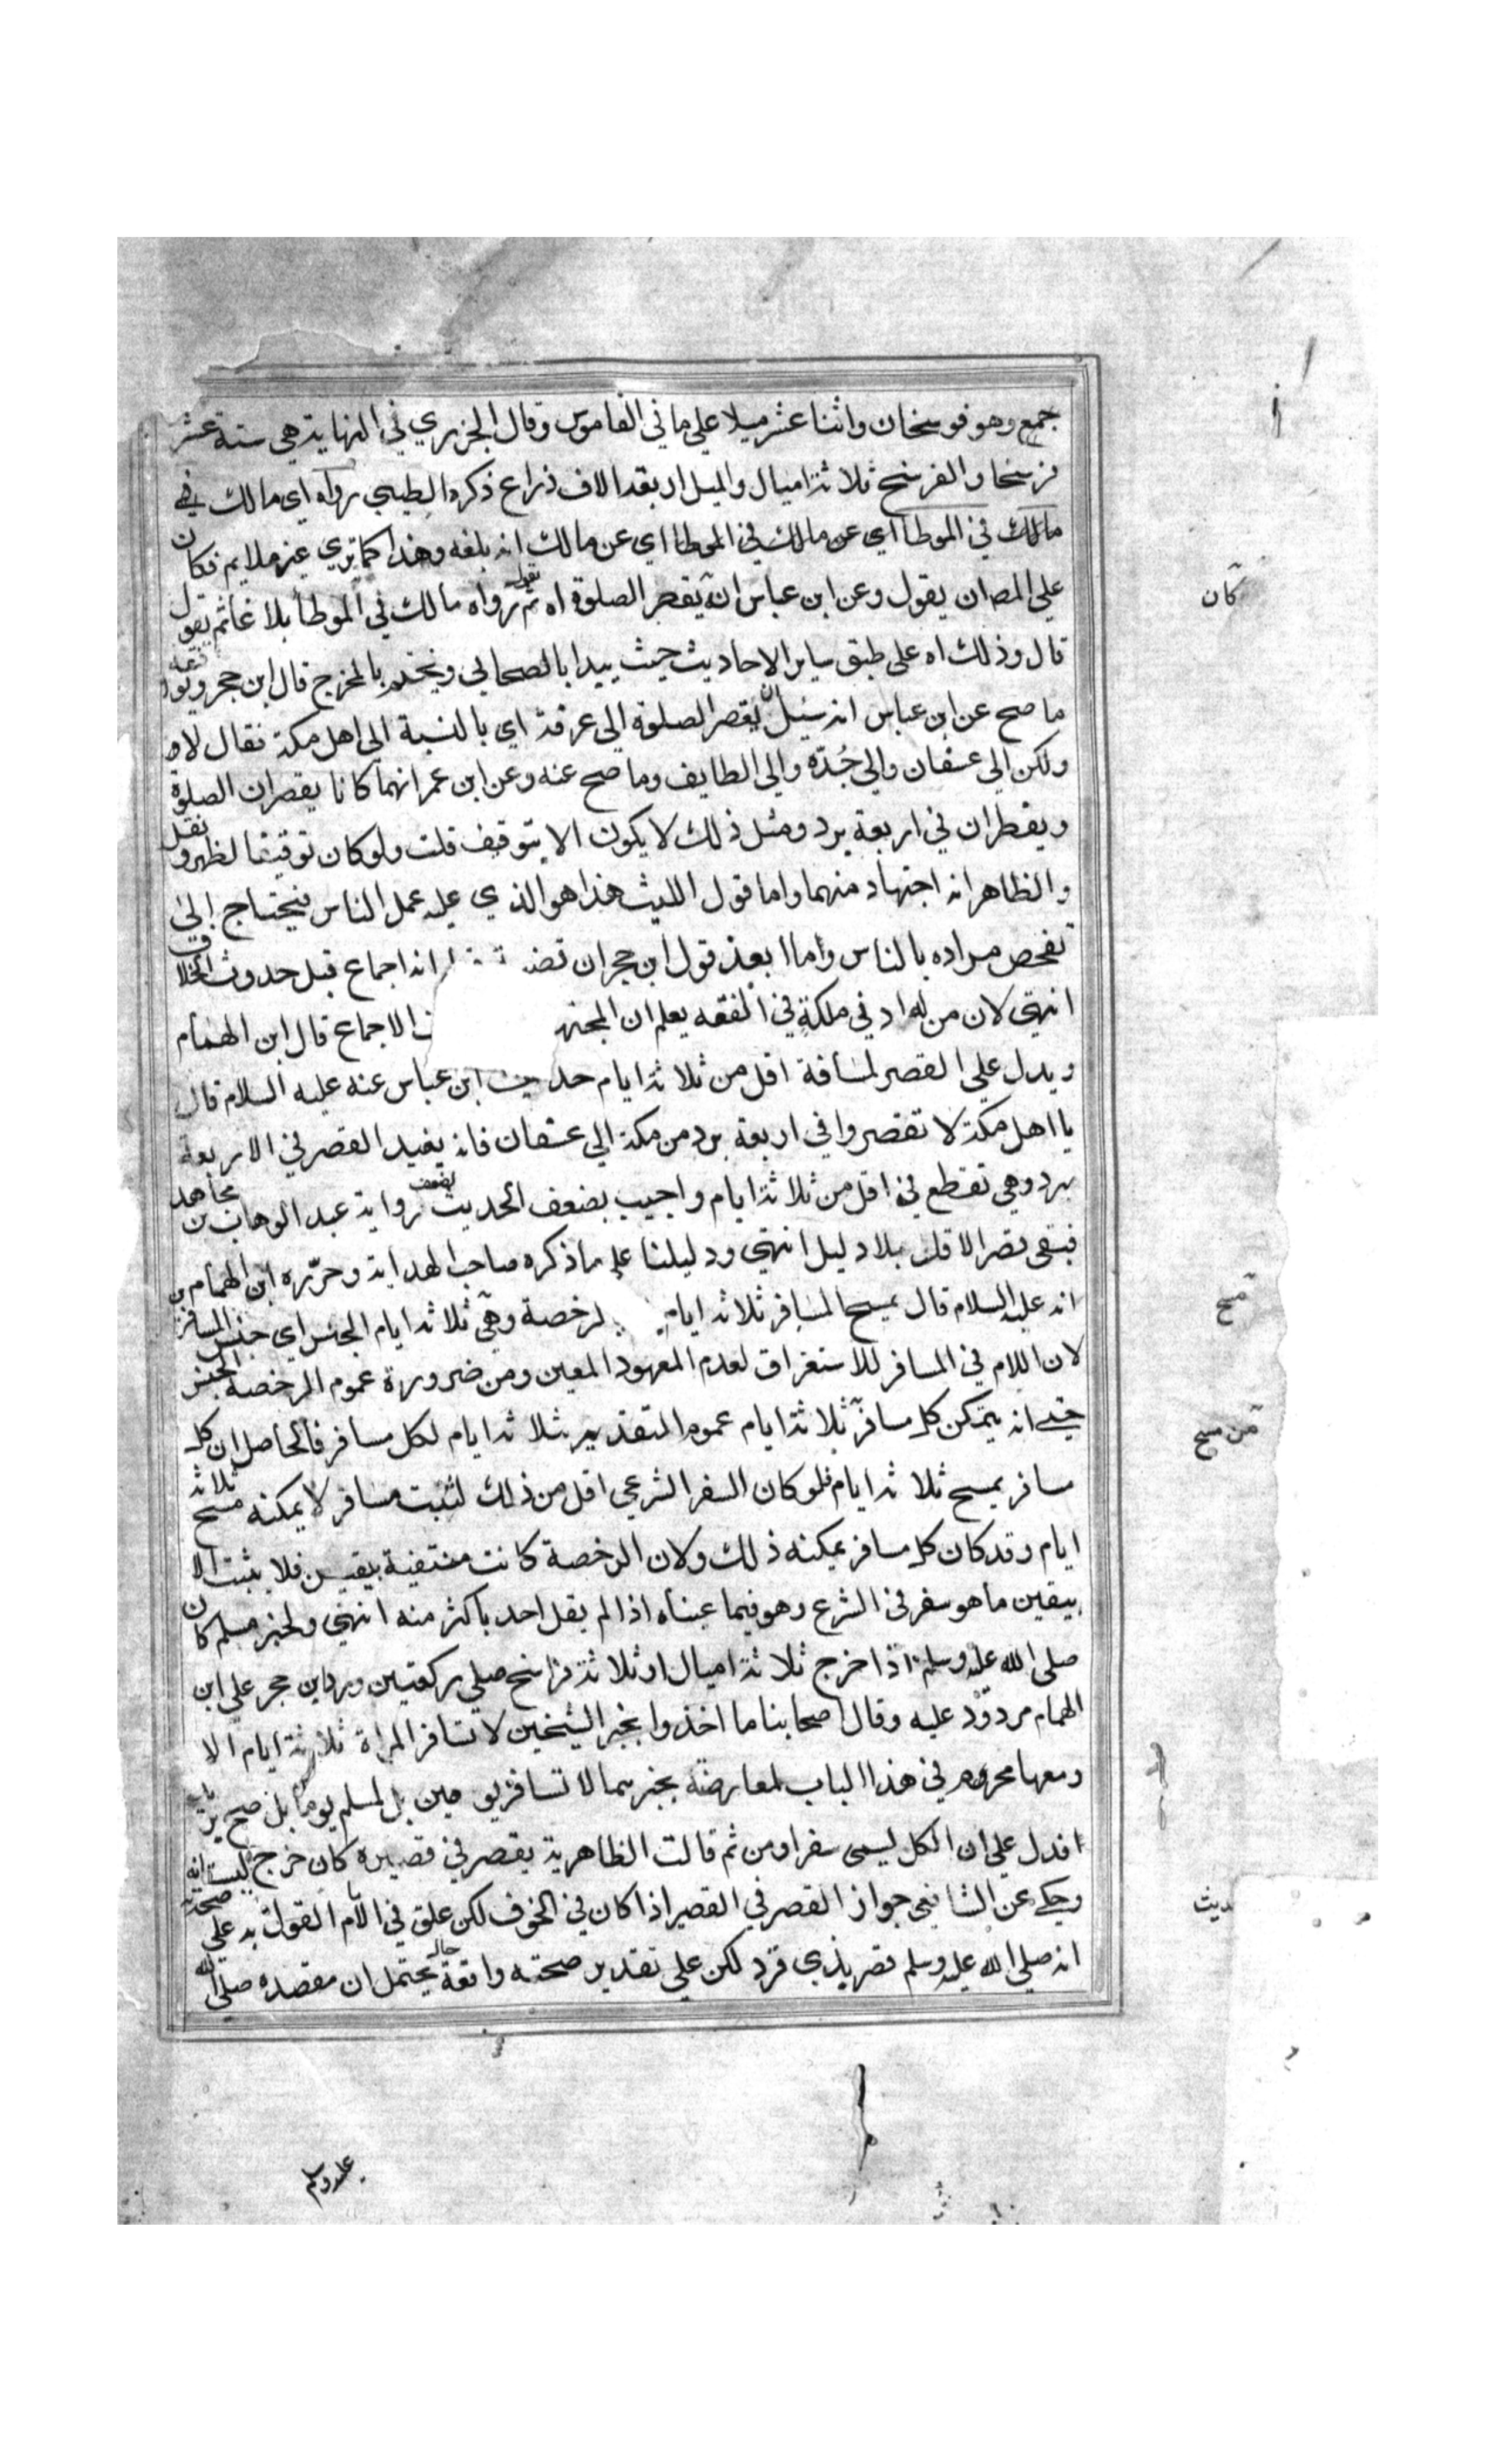 جمع وهو فرسخان واثنا عشر ميلا على ما في القاموس وقال الجزري في النهاية هي ستة عشر
فرسخا والفرسخ ثلاثة اميال والميل اربعة الاف ذراع ذكره الطيبي رواه اي مالك في
مالك في الموطا اي عن مالك في الموطا اي عن مالك انه بلغه وهذا كما تري غير ملايم فكان
علي المص ان يقول وعن ابن عباس انه يقصر الصلوة اه ثم يقول رواه مالك في الموطا بلاغا ثم يقول
قال وذلك اه على طبق ساير الاحاديث حيث يبدا بالصحابي ويختم بالمخرج قال ابن حجر
ما صح عن ابن عباس انه سئل يقصر الصلوة الى عرفة اي بالنسبة الى اهل مكة فقال لا
ولكن الي عسفان والي جُدّه والي الطايف وما صح عنه وعن ابن عمر انهما كانا يقصران الصلوة
ويفطران في اربعة برد ومثل ذلك لا يكون الا بتوقيف قلت ولو كان توقيفا لظهر ونقل
والظاهر انه اجتهاد منهما واما قول الليث هذا هو الذي عليه عمل الناس فيحتاج إلى
تفحص مراده بالناس واما ابعد قول ابن حجر ان انه اجماع قبل حدوث الخلاف
انتهى لان من له ادني ملكة في الفقه يعلم ان الاجماع قال ابن الهمام
ويدل علي القصر لمسافة اقل من ثلاثة ايام حديث ابن عباس عنه عليه السلام قال
يا اهل مكة لا تقصروا في اربعة برد من مكة الي عسفان فانه يفيد القصر في الاربعة
برد وهي تقطع في اقل من ثلاثة ايام واجيب بضعف الحديث لضعف رواية عبد الوهاب بن مجاهد
فبقى قصر الاقل بلا دليل انتهي ودليلنا على ما ذكره صاحب الهداية وحرّره ابن الهمام
انه عليه السلام قال يمسح المسافر ثلاثة ايام لرخصة وهي ثلاثة ايام الجنس اي جنس المسافر
لان اللام في المسافر للاستغراق لعدم المعهود المعين ومن ضرورة عموم الرخصة الجنس
حتى انه يتمكن كل مسافر ثلاثة ايام عموم التقدير بثلاثة ايام لكل مسافر فالحاصل ان كل
مسافر يمسح ثلاثة ايام فلو كان السفر الشرعي اقل من ذلك لثبت مسافر لا يمكنه مسح ثلاثة
ايام وقد كان كل مسافر يمكنه ذلك ولان الرخصة كانت منتفية بيقين فلا يثبت الا
بيقين ما هو سفر في الشرع وهو فيما عيناه اذا لم يقل احد باكثر منه انتهي ولخبر مسلم كان
صلى الله عليه وسلم اذا خرج ثلاثة اميال او ثلاثة فراسخ صلي ركعتين ورد ابن حجر علي ابن
الهمام مردود عليه وقال اصحابنا ما اخذوا بخبر الشيخين لا تسافر المراة ثلاثة ايام الا
ومعها محرم في هذا الباب لمعارضة بخبرهما لا تسافر يومين بل لمسلم يوما بل صح
افدل علي ان الكل يسمى سفرا ومن ثم قالت الظاهرية يقصر في قصيره كان خرج
وحكي عن الشافعي جواز القصر في القصير اذا كان في الخوف لكن علق في الام القول به علي صحة
انه صلى الله عليه وسلم قصر بذي قرد لكن علي تقدير صحته واقعة حال يحتمل ان مقصده صلى الله
عليه وسلم
كان
مسح
من مسح